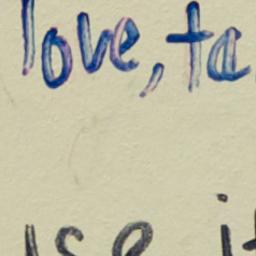 love, ta
use it